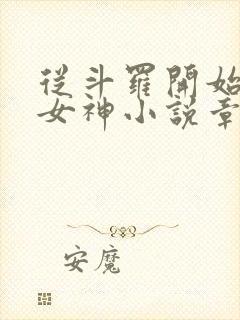 從斗羅開始
女神小説章
安魔